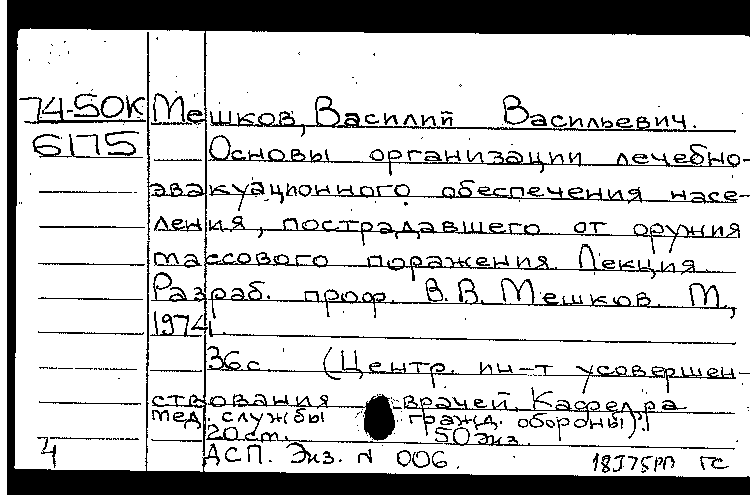 74-50К Мешков, Василий Васильевич.
6175 Основы организации лечебно-
эвакуационного обеспечения насе-
ления, пострадавшего от оружия
массового поражения. Лекция.
Разраб. проф. В.В. Мешков. М.,
1974.
36с. (Центр. ин-т усовершен-
ствования врачей. Кафедра
мед. службы гражд. обороны).
20см. 50 экз.
4 ДСП. Экз. N 006. 18J75РП ГС